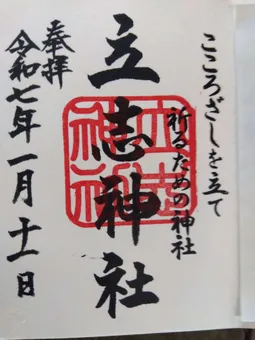 こころざしを立て
祈るための神社
立志神社
奉拝
令和七年一月十一日